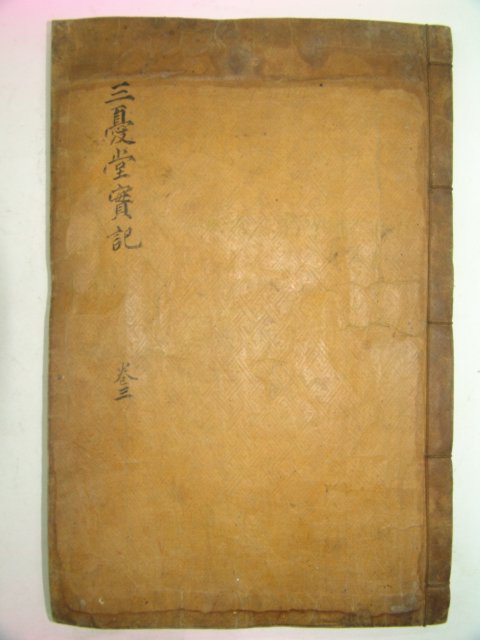 三憂堂實記
卷三